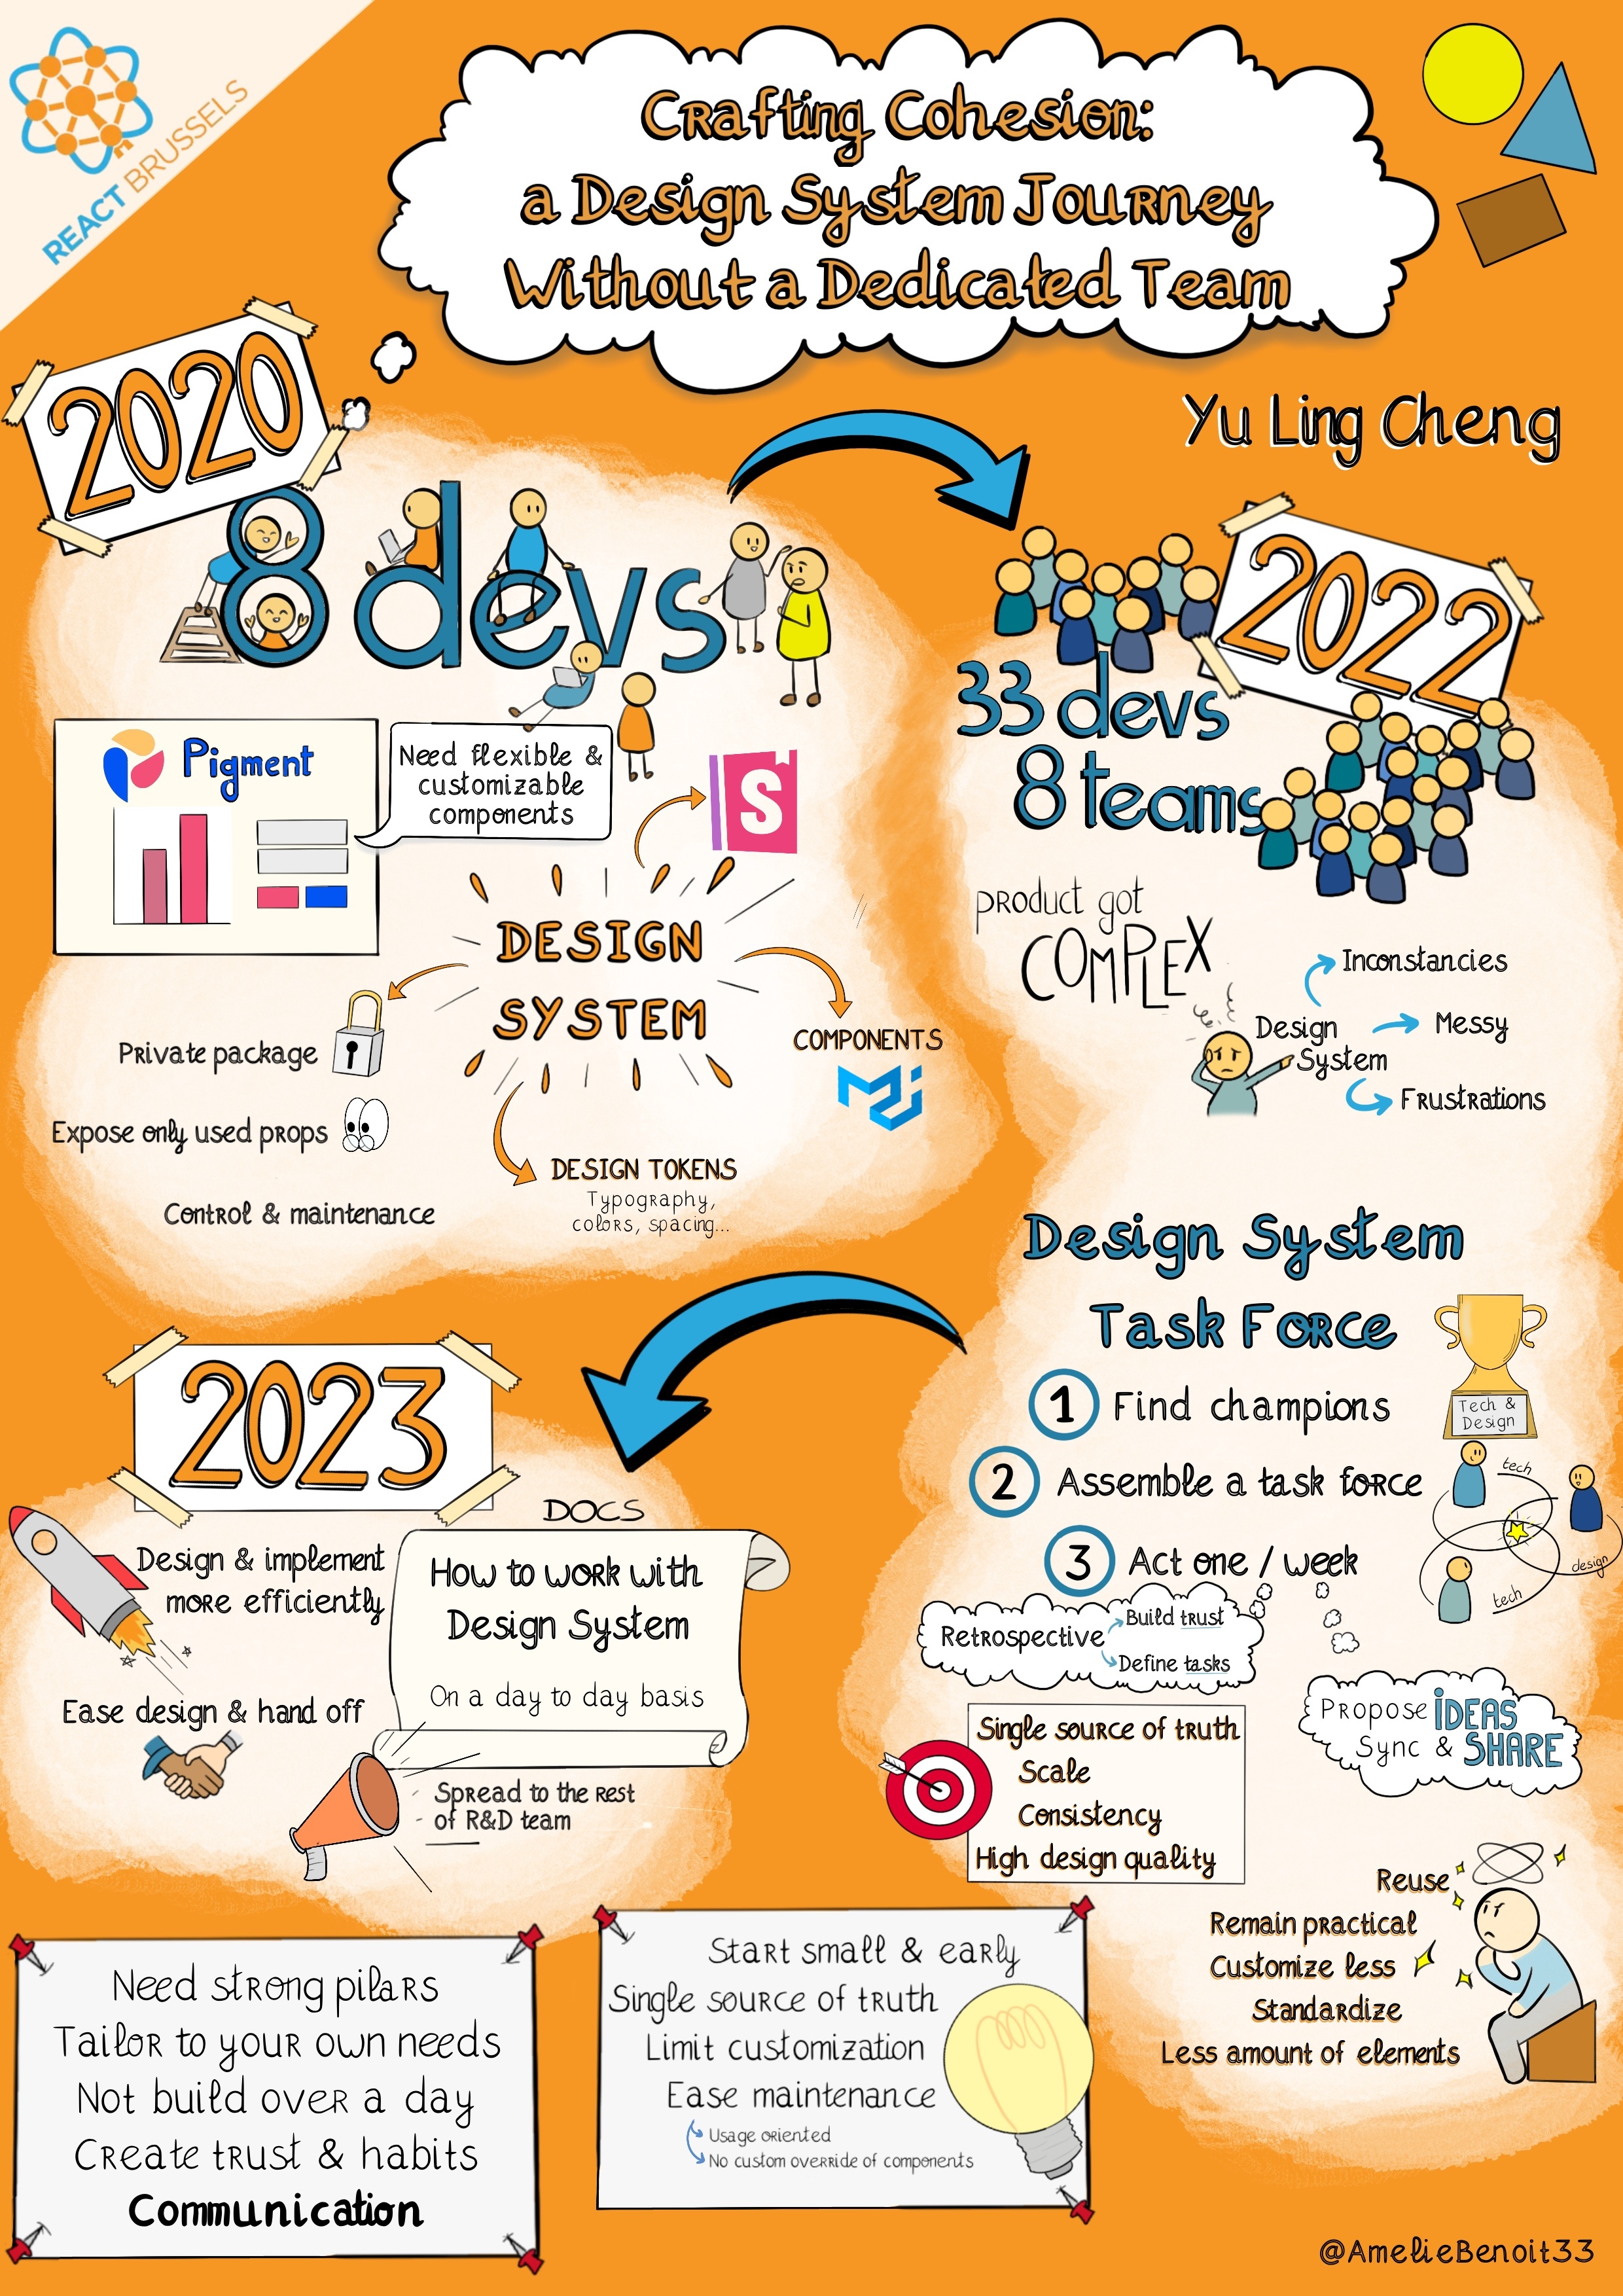 REACT BRUSSELS
Crafting Cohesion:
a Design System Journey
Without a Dedicated Team
Yu Ling Cheng
2020
8 devs
Pigment
Need flexible &
customizable
components
S
DESIGN
SYSTEM
Private package
Expose only used props
Control & maintenance
COMPONENTS
DESIGN TOKENS
Typography,
colors, spacing...
2022
33 devs
8 teams
product got
COMPLEX
Design
System
Inconstancies
Messy
Frustrations
Design System
Task Force
1 Find champions
Tech &
Design
2 Assemble a task force
tech
design
tech
3 Act one / week
Retrospective
Build trust
Define tasks
Propose IDEAS
Sync & SHARE
Single source of truth
Scale
Consistency
High design quality
Reuse
Remain practical
Customize less
Standardize
Less amount of elements
2023
Design & implement
more efficiently
Ease design & hand off
DOCS
How to work with
Design System
On a day to day basis
Spread to the rest
of R&D team
Need strong pilars
Tailor to your own needs
Not build over a day
Create trust & habits
Communication
Start small & early
Single source of truth
Limit customization
Ease maintenance
Usage oriented
No custom override of components
@AmelieBenoit33